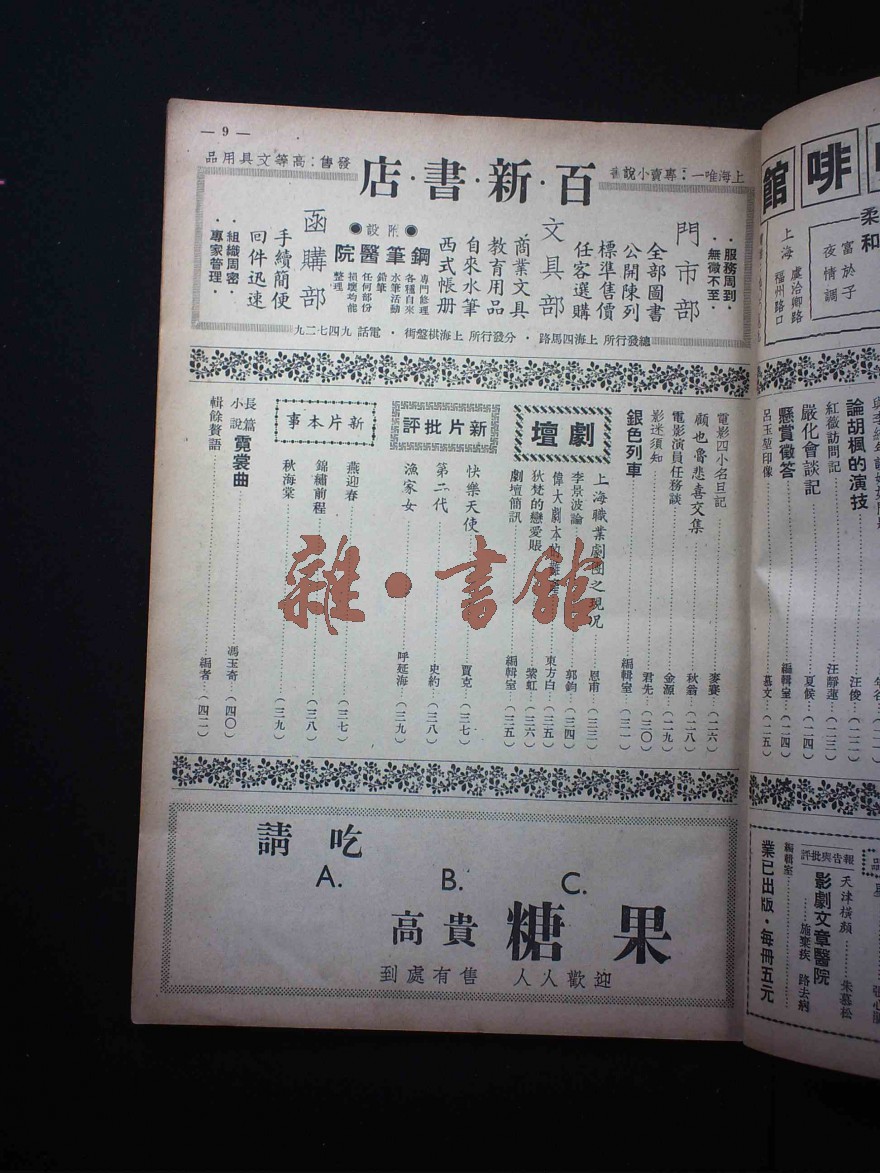 — 9 —
上海唯一：專賣小說書
百·新·書·店
發售：高等文具用品
·服務周到·
·無微不至·
門市部
全部圖書
公開陳列
標準售價
任客選購
文具部
商業文具
教育用品
自來水筆
西式帳册
●附設●
鋼筆醫院
專門修理
各種自來
水筆活動
鉛筆
任何部份
損壞均能
整理
函購部
手續簡便
回件迅速
·組織周密·
·專家管理·
總發行所 上海四馬路 · 分發行所 上海棋盤街 · 電話 九四七二九
電影四小名旦記……麥賽…（二六）
顧也魯悲喜交集……秋翁…（二八）
電影演員任務談……金源…（二九）
影迷須知……君先…（三〇）
銀色列車……編輯室…（三一）
劇壇
上海職業劇團之現况……恩甫…（三三）
李景波論……郭鈞…（三四）
偉大劇本的……東方白…（三五）
狄梵的戀愛賬……紫虹…（三六）
劇壇簡訊……編輯室…（三五）
新片批評
快樂天使……賈克…（三七）
第二代……史約…（三八）
漁家女……呼延海…（三九）
新片本事
燕迎春……（三七）
錦繡前程……（三八）
秋海棠……（三九）
長篇小說 霓裳曲……馮玉奇…（四〇）
輯餘贅語……編者…（四二）
請吃
A. B. C.
高貴糖果
到處有售 人人歡迎
雜·書館
啡館
柔和
富於子
夜情調
上海 虞洽卿路
福州路口
論胡楓的演技……汪俊…（二二）
紅薇訪問記……汪靜蓮…（二三）
嚴化會談記……夏候…（二四）
懸賞徵答……編輯室…（二四）
呂玉堃印像……慕文…（二五）
報告與批評
天津橫顏……朱慕松
影劇文章醫院
……施棄疾 路去病
編輯室
業已出版·每冊五元